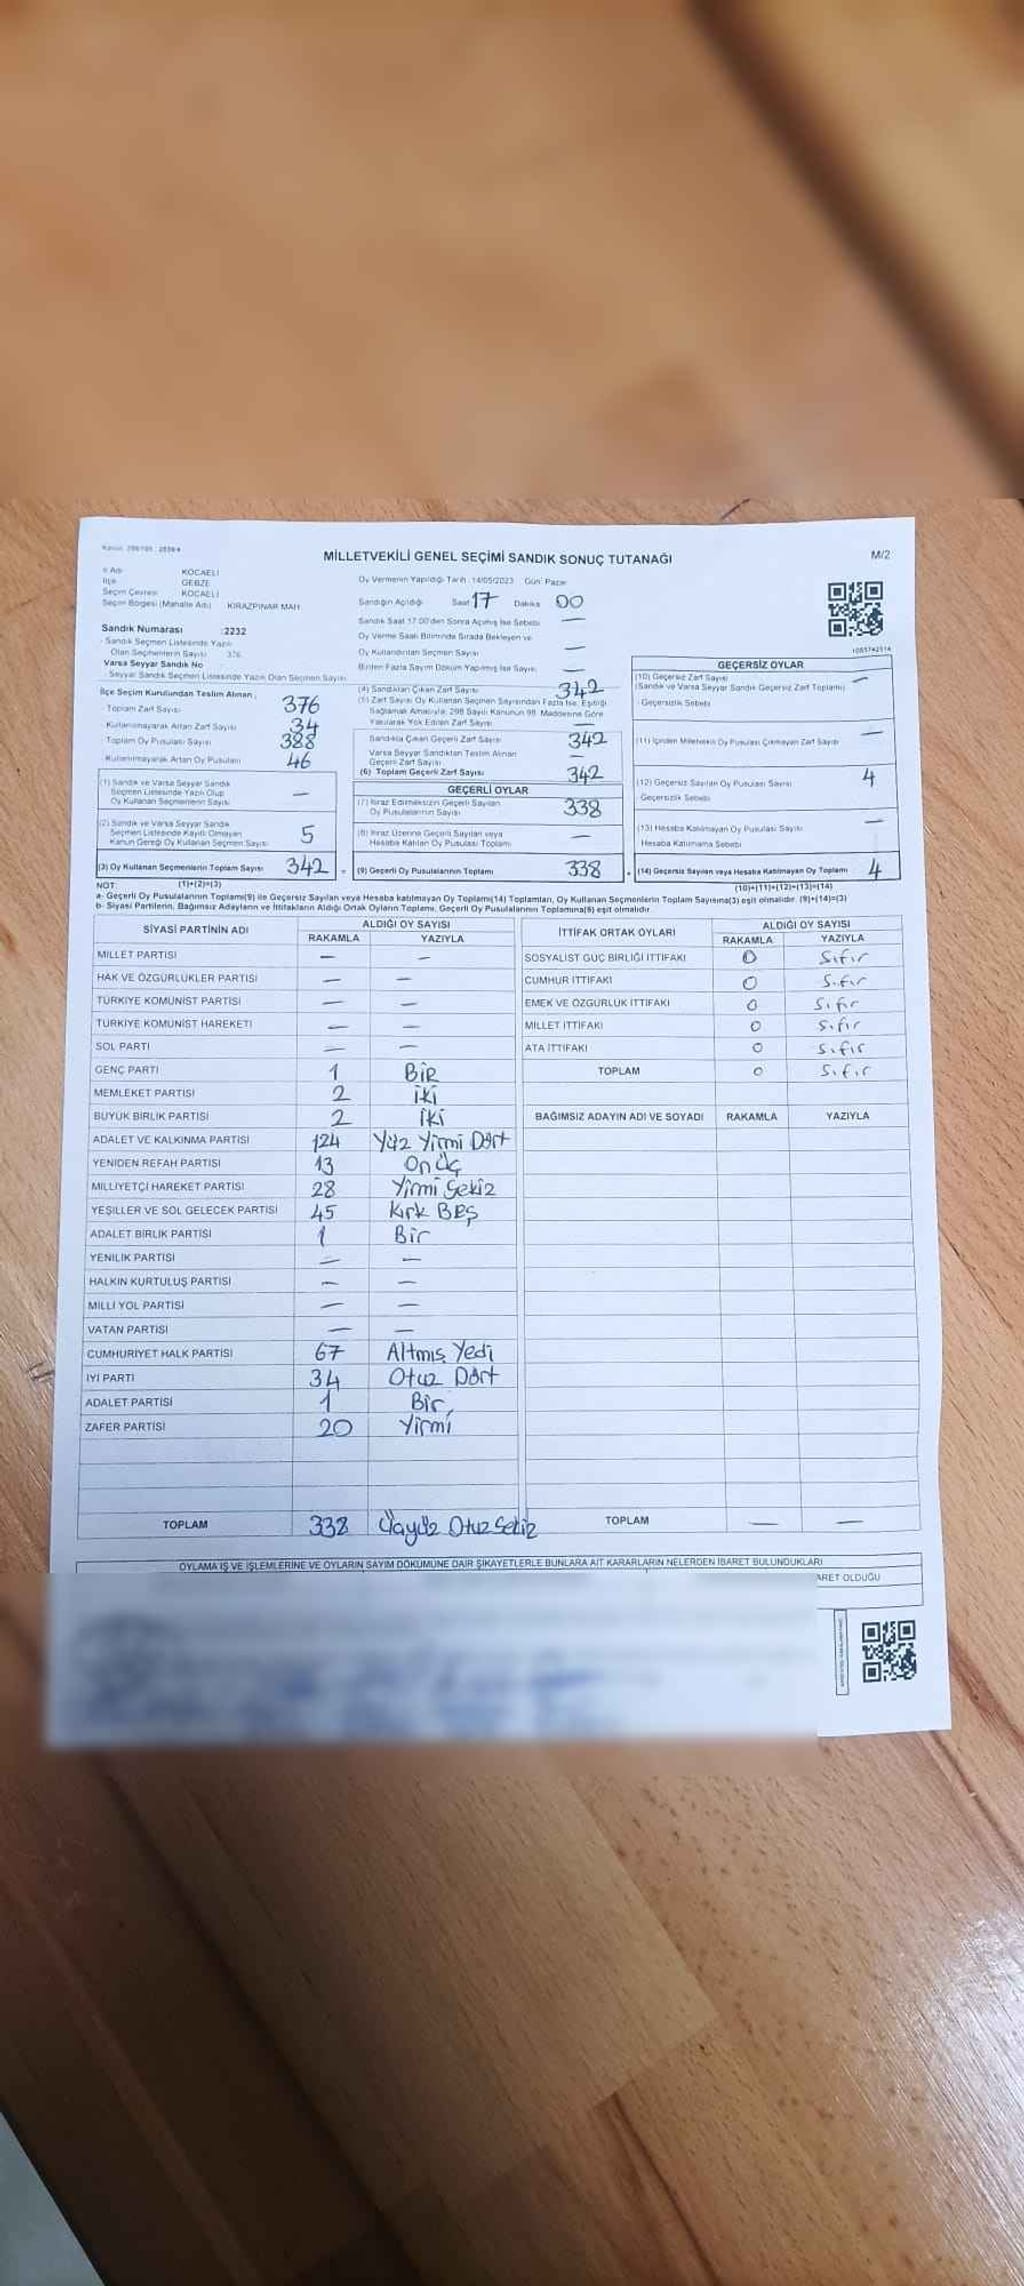 MİLLETVEKİLİ GENEL SEÇİMİ SANDIK SONUÇ TUTANAĞI
M/2
İl Adı KOCAELİ
İlçe GEBZE
Seçim Çevresi KOCAELİ
Seçim Bölgesi (Mahalle Adı) KİRAZPINAR MAH.
Sandık Numarası :2232
- Sandık Seçmen Listesinde Yazılı
Olan Seçmenlerin Sayısı 376
Varsa Seyyar Sandık No
- Seyyar Sandık Seçmen Listesinde Yazılı Olan Seçmen Sayısı
Oy Vermenin Yapıldığı Tarih :14/05/2023 Gün: Pazar
Sandığın Açıldığı Saat 17 Dakika 00
Sandık Saat 17.00'den Sonra Açılmış İse Sebebi —
Oy Verme Saati Bitiminde Sırada Bekleyen ve
Oy Kullandırılan Seçmen Sayısı —
Birden Fazla Sayım Döküm Yapılmış İse Sayısı —
İlçe Seçim Kurulundan Teslim Alınan ;
- Toplam Zarf Sayısı 376
- Kullanılmayarak Artan Zarf Sayısı 34
- Toplam Oy Pusulası Sayısı 388
- Kullanılmayarak Artan Oy Pusulası 46
(1) Sandık ve Varsa Seyyar Sandık
Seçmen Listesinde Yazılı Olup
Oy Kullanan Seçmenlerin Sayısı —
(2) Sandık ve Varsa Seyyar Sandık
Seçmen Listesinde Kayıtlı Olmayan
Kanun Gereği Oy Kullanan Seçmen Sayısı 5
(3) Oy Kullanan Seçmenlerin Toplam Sayısı 342
(1)+(2)=(3)
(4) Sandıktan Çıkan Zarf Sayısı 342
(5) Zarf Sayısı Oy Kullanan Seçmen Sayısından Fazla İse, Eşitliği
Sağlamak Amacıyla; 298 Sayılı Kanunun 98. Maddesine Göre
Yakılarak Yok Edilen Zarf Sayısı —
Sandıkta Çıkan Geçerli Zarf Sayısı 342
Varsa Seyyar Sandıktan Teslim Alınan
Geçerli Zarf Sayısı
(6) Toplam Geçerli Zarf Sayısı 342
GEÇERLİ OYLAR
(7) İtiraz Edilmeksizin Geçerli Sayılan
Oy Pusulalarının Sayısı 338
(8) İtiraz Üzerine Geçerli Sayılan veya
Hesaba Katılan Oy Pusulası Toplamı —
(9) Geçerli Oy Pusulalarının Toplamı 338
GEÇERSİZ OYLAR
(10) Geçersiz Zarf Sayısı —
(Sandık ve Varsa Seyyar Sandık Geçersiz Zarf Toplamı)
- Geçersizlik Sebebi
(11) İçinden Milletvekili Oy Pusulası Çıkmayan Zarf Sayısı —
(12) Geçersiz Sayılan Oy Pusulası Sayısı 4
- Geçersizlik Sebebi
(13) Hesaba Katılmayan Oy Pusulası Sayısı —
Hesaba Katılmama Sebebi
(14) Geçersiz Sayılan veya Hesaba Katılmayan Oy Toplamı 4
(10)+(11)+(12)+(13)=(14)
NOT:
a- Geçerli Oy Pusulalarının Toplamı(9) ile Geçersiz Sayılan veya Hesaba katılmayan Oy Toplamı(14) Toplamları, Oy Kullanan Seçmenlerin Toplam Sayısına(3) eşit olmalıdır. (9)+(14)=(3)
b- Siyasi Partilerin, Bağımsız Adayların ve İttifakların Aldığı Ortak Oyların Toplamı, Geçerli Oy Pusulalarının Toplamına(9) eşit olmalıdır.
SİYASİ PARTİNİN ADI ALDIĞI OY SAYISI
RAKAMLA YAZIYLA
MİLLET PARTİSİ — —
HAK VE ÖZGÜRLÜKLER PARTİSİ — —
TÜRKİYE KOMÜNİST PARTİSİ — —
TÜRKİYE KOMÜNİST HAREKETİ — —
SOL PARTİ — —
GENÇ PARTİ 1 BİR
MEMLEKET PARTİSİ 2 İKİ
BÜYÜK BİRLİK PARTİSİ 2 İKİ
ADALET VE KALKINMA PARTİSİ 124 Yüz Yirmi Dört
YENİDEN REFAH PARTİSİ 13 On Üç
MİLLİYETÇİ HAREKET PARTİSİ 28 Yirmi Sekiz
YEŞİLLER VE SOL GELECEK PARTİSİ 45 Kırk BEŞ
ADALET BİRLİK PARTİSİ 1 Bir
YENİLİK PARTİSİ — —
HALKIN KURTULUŞ PARTİSİ — —
MİLLİ YOL PARTİSİ — —
VATAN PARTİSİ — —
CUMHURİYET HALK PARTİSİ 67 Altmış Yedi
İYİ PARTİ 34 Otuz Dört
ADALET PARTİSİ 1 Bir
ZAFER PARTİSİ 20 Yirmi
TOPLAM 338 Üçyüz Otuz Sekiz
İTTİFAK ORTAK OYLARI ALDIĞI OY SAYISI
RAKAMLA YAZIYLA
SOSYALİST GÜÇ BİRLİĞİ İTTİFAKI 0 Sıfır
CUMHUR İTTİFAKI 0 Sıfır
EMEK VE ÖZGÜRLÜK İTTİFAKI 0 Sıfır
MİLLET İTTİFAKI 0 Sıfır
ATA İTTİFAKI 0 Sıfır
TOPLAM 0 Sıfır
BAĞIMSIZ ADAYIN ADI VE SOYADI RAKAMLA YAZIYLA
TOPLAM — —
OYLAMA İŞ VE İŞLEMLERİNE VE OYLARIN SAYIM DÖKÜMÜNE DAİR ŞİKAYETLERLE BUNLARA AİT KARARLARIN NELERDEN İBARET BULUNDUKLARI
ARET OLDUĞU